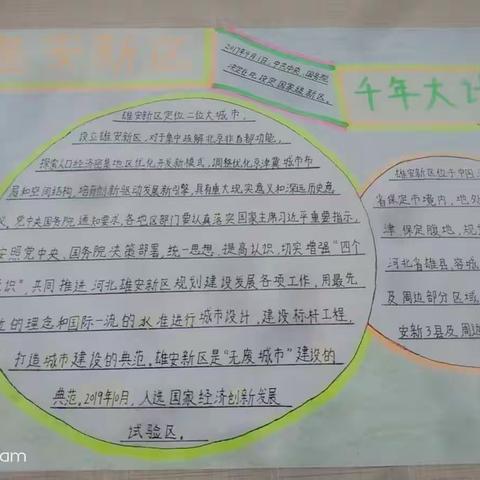 雄安新区
2017年4月1日,中共中央、国务院
决定在此设定国家级新区。
千年大计
雄安新区定位二位大城市,
设立雄安新区,对于集中疏解北京非首都功能,
探索人口经济密集地区优化开发新模式,调整优化京津冀城市布
局和空间结构,培育创新驱动发展新引擎,具有重大现实意义和深远历史意
义。党中央国务院通知要求,各地区部门要认真落实国家主席习近平重要指示,
按照党中央、国务院决策部署,统一思想、提高认识,切实增强“四个
意识”,共同推进河北雄安新区规划建设发展各项工作,用最先
进的理念和国际一流的水准进行城市设计,建设标杆工程,
打造城市建设的典范。雄安新区是“无废城市”建设的
典范。2019年10月,入选国家经济创新发展
试验区。
雄安新区位于中国
省保定市境内,地处
津 保定腹地,规
河北省雄县、容城
及周边部分区域
安新3县及周边
am